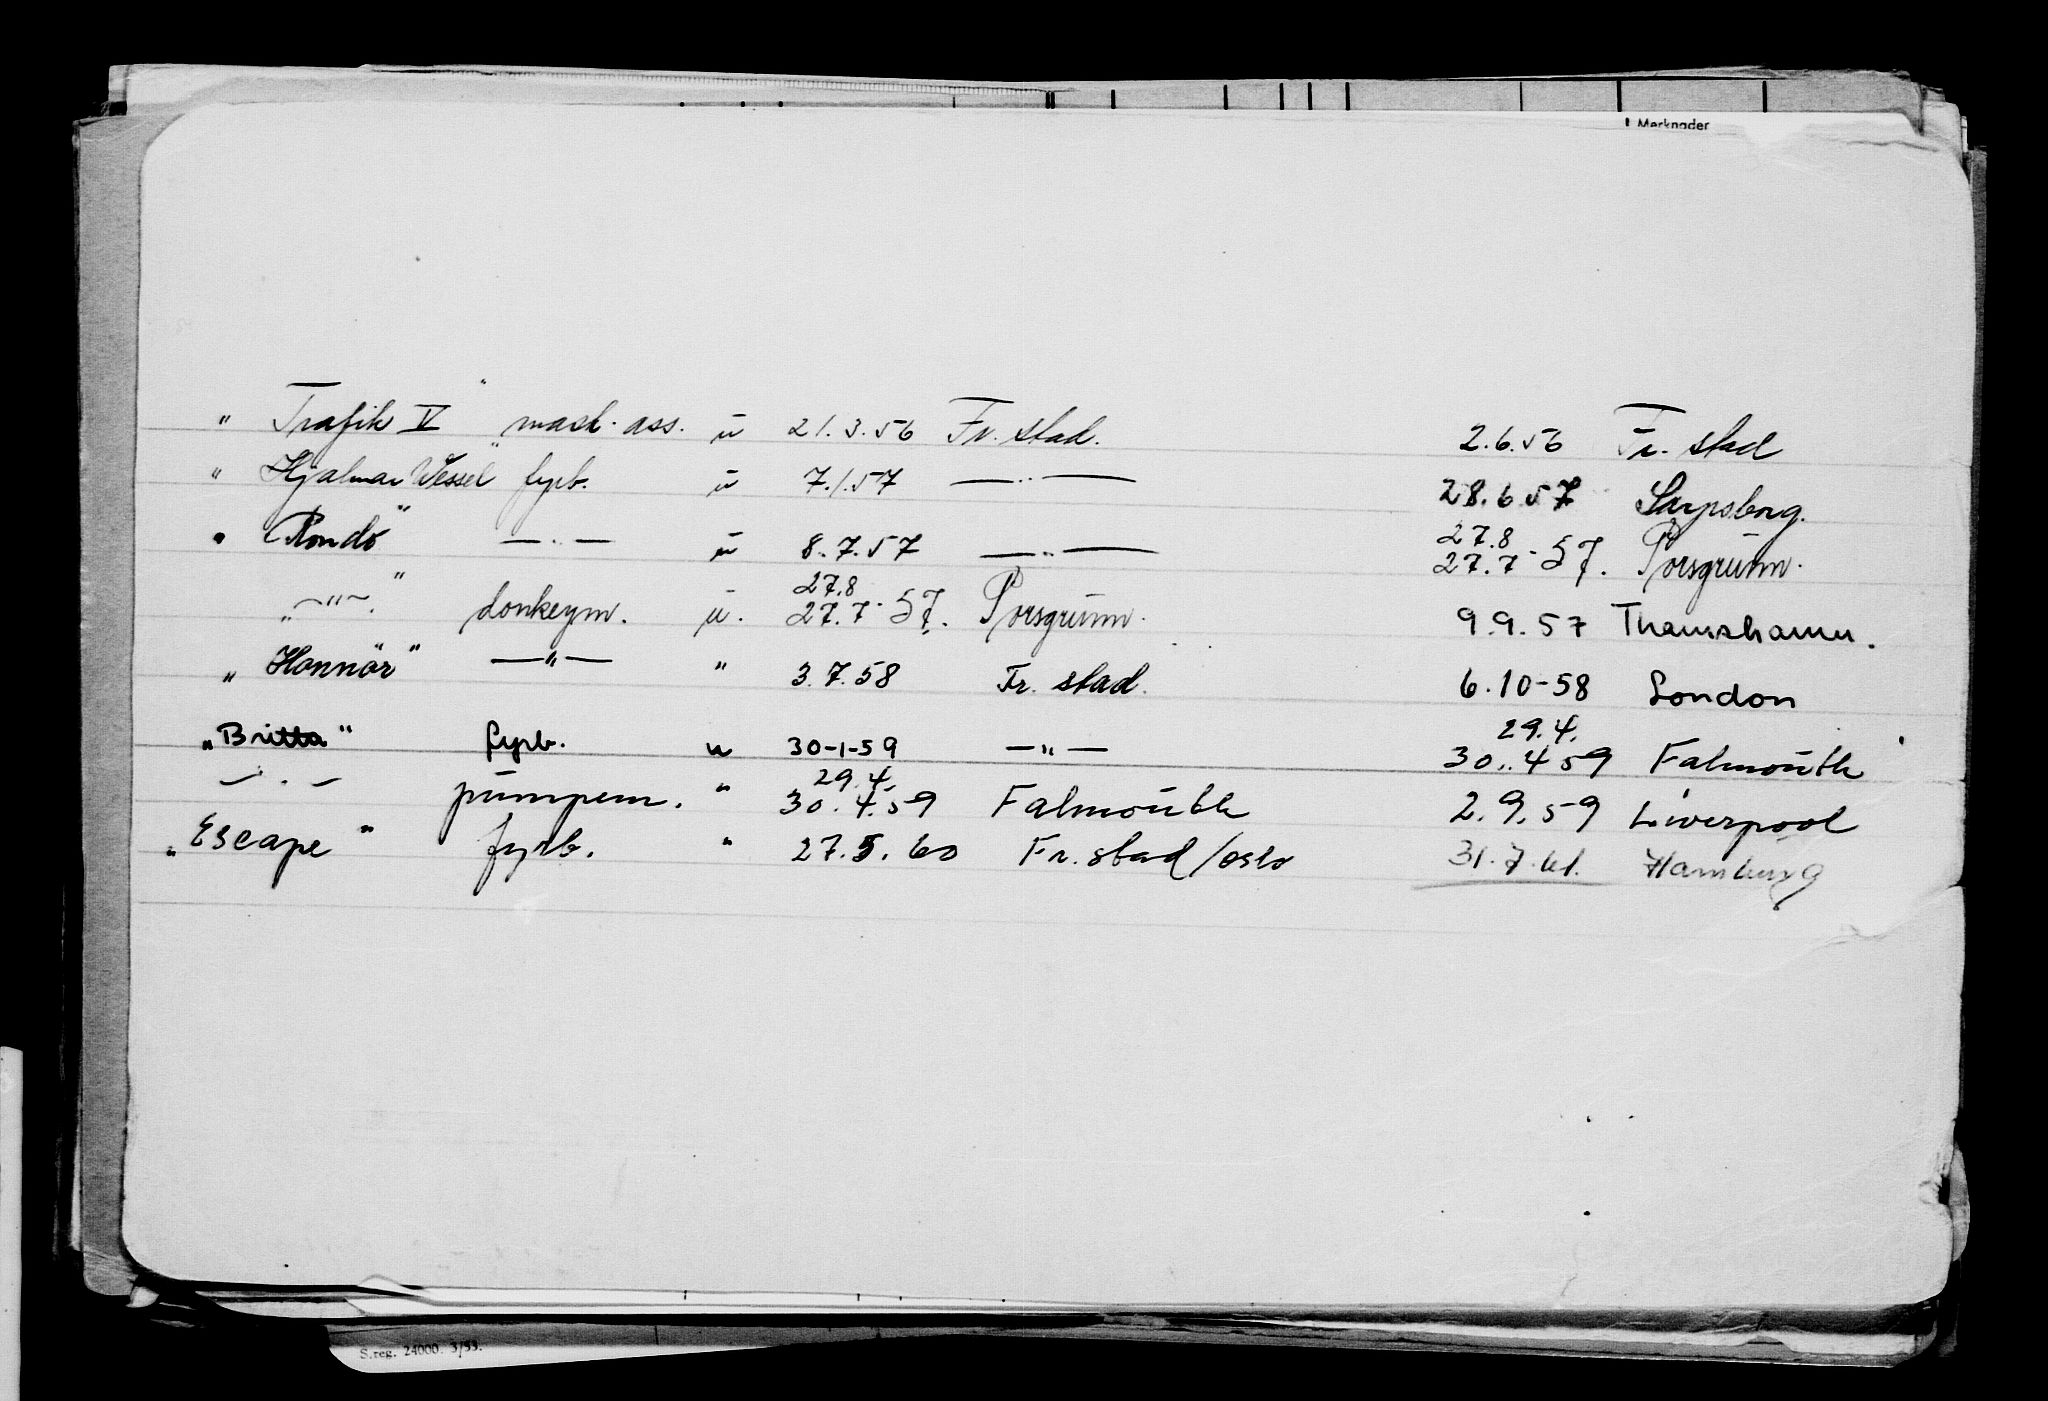 Merknader
" Trafik V " mask. ass. u 21.3.56 Fr. stad. 2.6.56 Fr. stad
" Hjalmar Wessel " fyrb. u 7.1.57 —"— 28.6.57 Sarpsborg.
" Rondo " —"— u 8.7.57 —"— 27.8 27.7-57. Porsgrunn.
—"— " donkeym. u. 27.8 27.7-57. Porsgrunn. 9.9.57 Thamshamn.
" Honnör " —"— " 3.7.58 Fr. stad. 6.10-58 London
"Britta" fyrb. u 30-1-59 —"— 29.4. 30.4 59 Falmouth
—"— pumpem. " 29.4. 30.4.59 Falmouth 2.9.59 Liverpool
"Escape" fyrb. " 27.5.60 Fr. stad/Oslo 31.7.61. Hamburg
S.reg. 24000. 3/53.